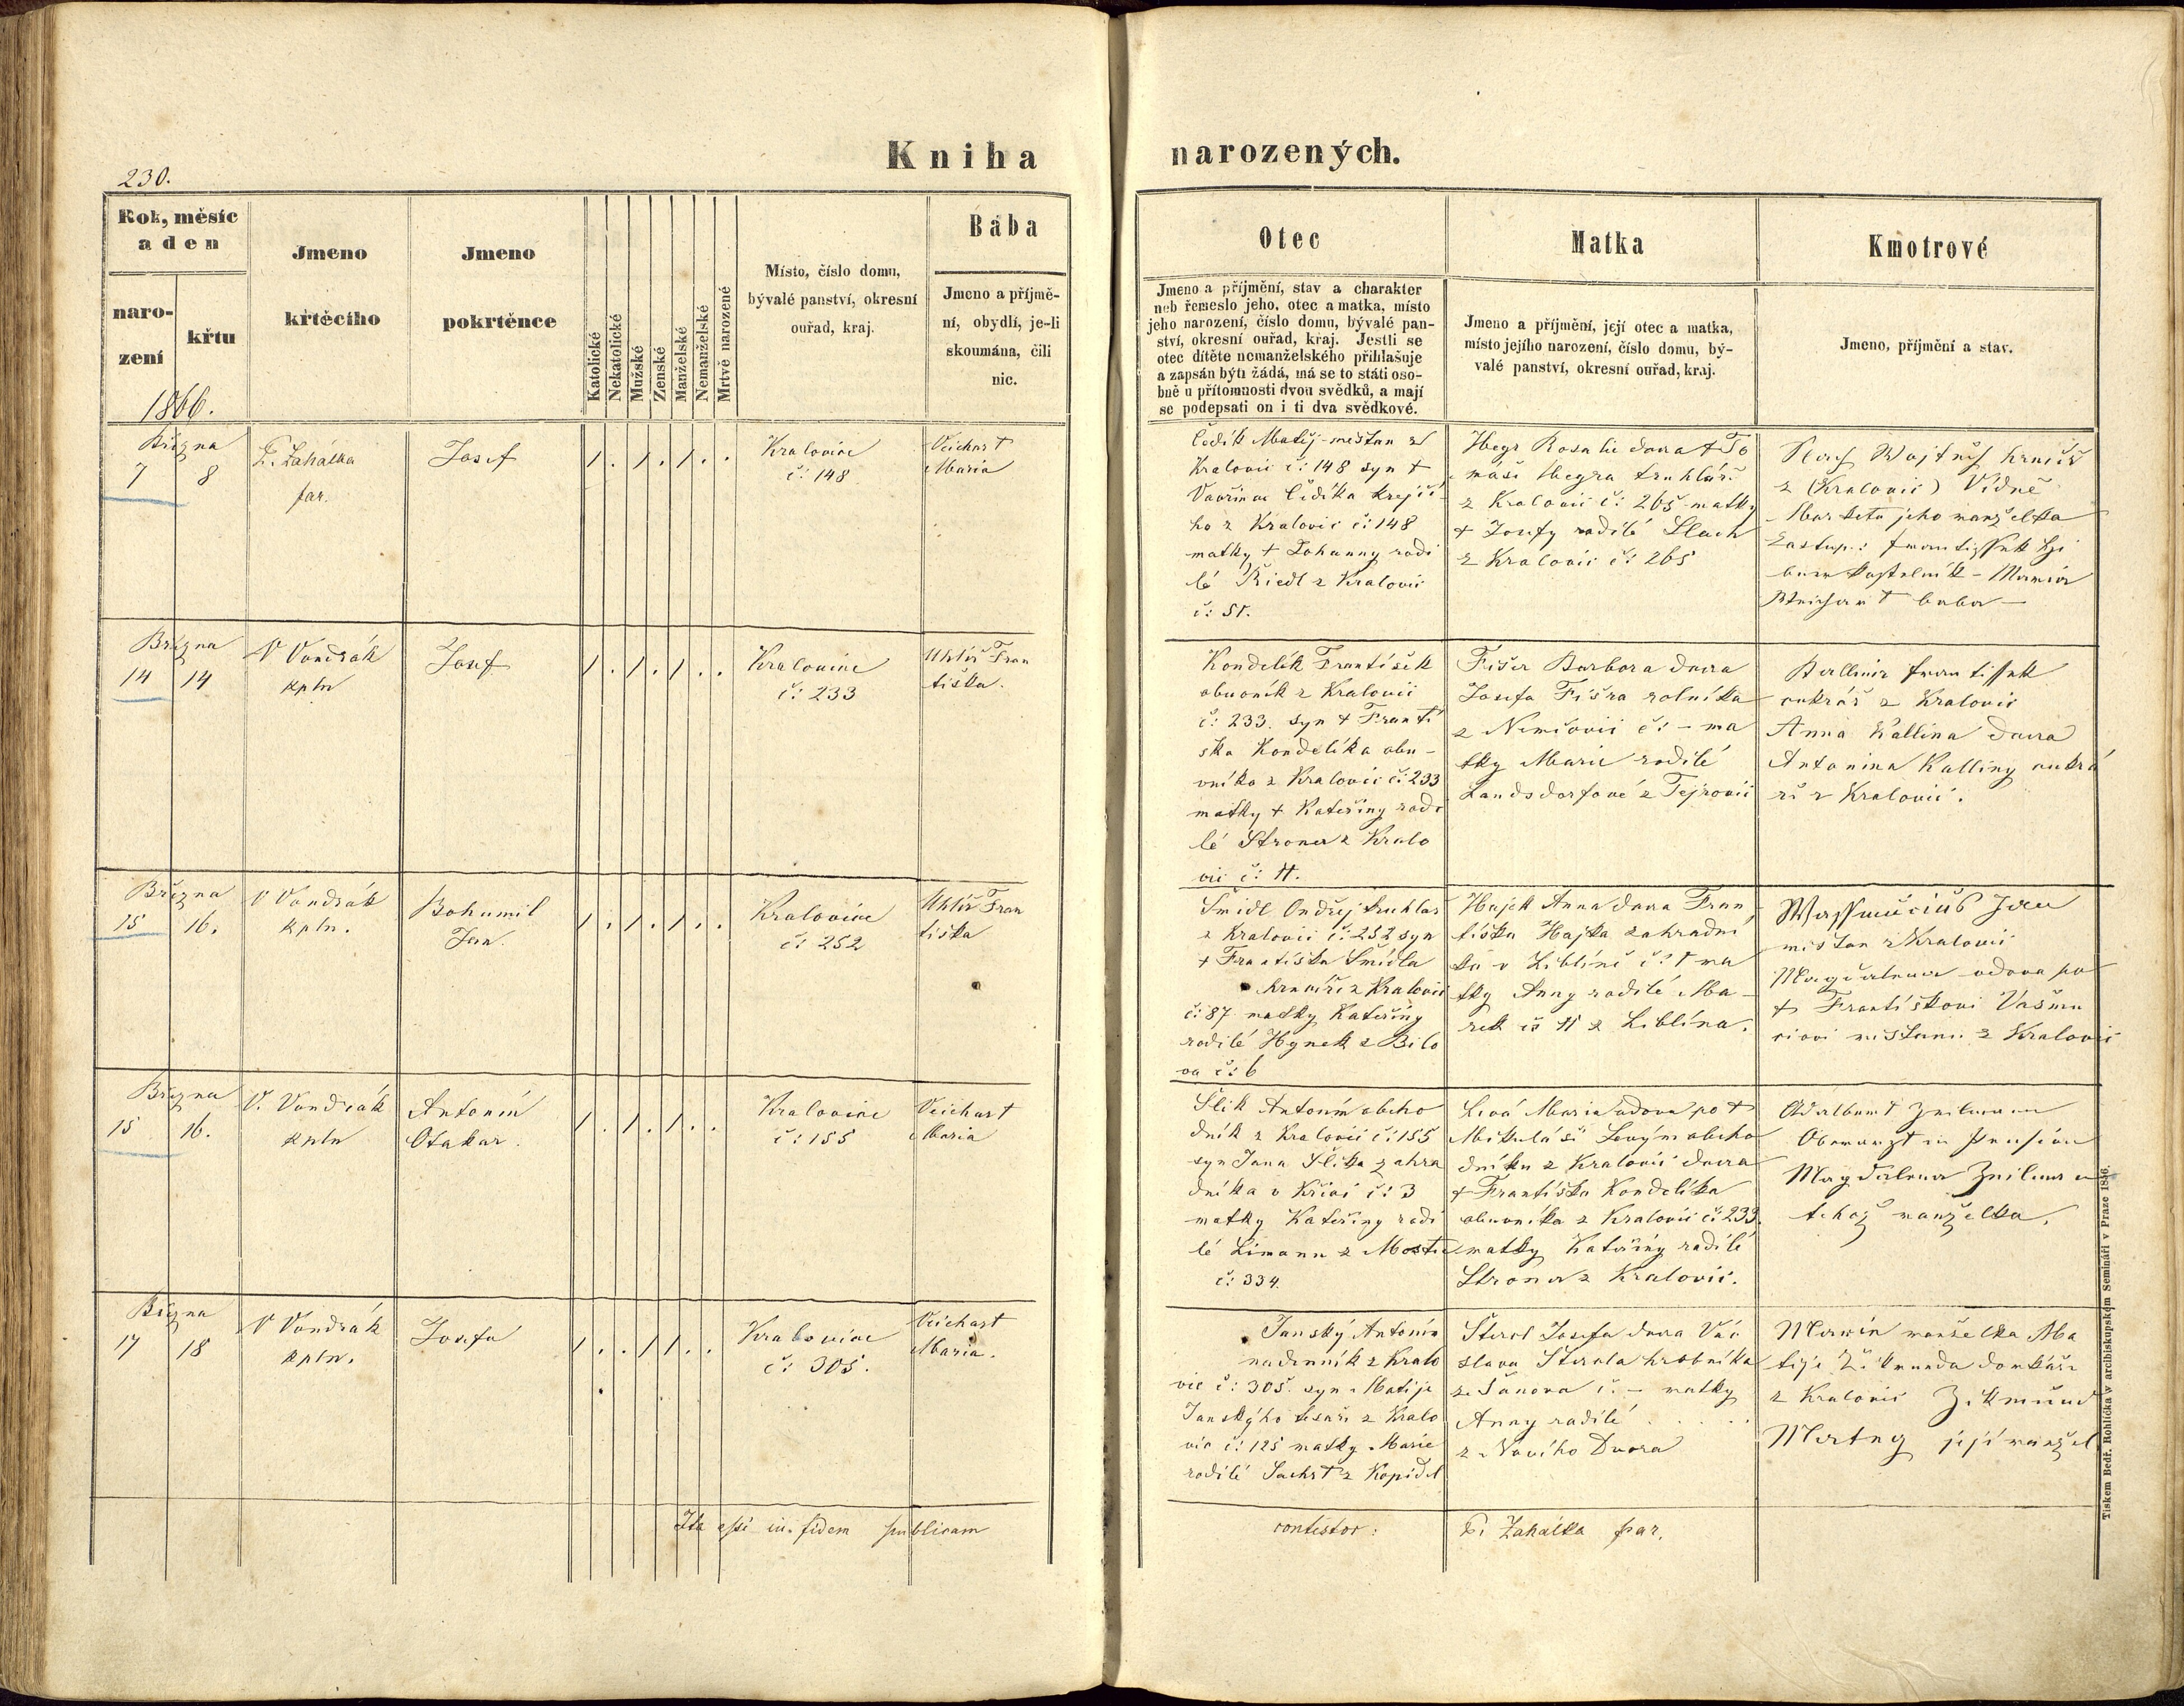 230.
Kniha narozených.
Rok, měsíc
a den
naro-
zení
křtu
1866.
Jmeno
křtěcího
Jmeno
pokrtěnce
Katolické
Nekatolické
Mužské
Zenské
Manželské
Nemanželské
Mrtvě narozené
Místo, číslo domu,
bývalé panství, okresní
ouřad, kraj.
Bába
Jmeno a příjmě-
ní, obydlí, je-li
skoumána, čili
nic.
Otec
Jmeno a příjmění, stav a charakter
neb řemeslo jeho, otec a matka, místo
jeho narození, číslo domu, bývalé pan-
ství, okresní ouřad, kraj. Jestli se
otec dítěte nemanželského přihlašuje
a zapsán býti žádá, má se to státi oso-
bně u přítomnosti dvou svědků, a mají
se podepsati on i ti dva svědkové.
Matka
Jmeno a příjmění, její otec a matka,
místo jejího narození, číslo domu, bý-
valé panství, okresní ouřad, kraj.
Kmotrové
Jmeno, příjmění a stav.
Března
7 8
Zahálka
far.
Josef
1 . 1 . 1 . .
Kralovice
č: 148
Veichart
Maria
Čedík Matěj měštan z
Kralovic č: 148 syn +
Vavřince Čedíka krejčí
ho z Kralovic č: 148
matky + Johanny rodi
lé Riedl z Kralovic
č: 51.
Hegr Rosalie dcera + To
máše Hegra truhláře
z Kralovic č: 265 matky
+ Josefy rodilé Slach
z Kralovic č: 265
z (Kralovic) Vídně
Marketa jeho manželka
Zastup.: Frantissek
kostelník - Maria
baba -
Března
14 14
V Vondrák
kpln
Josef
1 . 1 . 1 . .
Kralovice
č: 233
Uhlíř Fran
tiška.
Kondelík František
obuvník z Kralovic
č: 233. syn + Franti
ška Kondelíka obu-
vníka z Kralovic č: 233
matky + Kateřiny rodi
lé Stroner z Kralo
vic č: 11.
Fišer Barbora dcera
Josefa Fišra rolníka
z Nemčovic č: - ma
tky Marie rodilé
Landsdorfové z Tejrovic
Frantissek
cukrář z Kralovic
Anna Kallina dcera
Antonina Kalliny cukrá
ře z Kralovic.
Března
15 16.
V Vondrák
kpln.
Bohumil
Jan.
1 . 1 . 1 . .
Kralovice
č: 252
Uhlíř Fran
tiška
Šmidl Ondřej truhlař
z Kralovic č: 252 syn
+ Františka Šmidla
krnčíře z Kralovic
č: 87 matky Kateřiny
rodilé Hynek z Bílo
va č: 6
Hajek Anna dcera Fran
tiška Hajka zahradní
ka v Liblíně č: 1 ma
tky Anny rodilé Ma-
rek č: 11 z Liblína.
Wassmucius Jan
mistan z Kralovic
Magdalena vdova po
+ Františkovi Vasmu
ciovi mistanu z Kralovic
Března
15 16.
V. Vondrák
kpln
Antonín
Otakar.
1 . 1 . 1 . .
Kralovice
č: 155
Veichart
Maria
Šlik Antonín obcho
dník z Kralovic č: 155
syn Jana Šlika zahra
dníka v Křici č: 3
matky Kateřiny rodi
lé Limann z Mostic
č: 334.
Levá Maria vdova po +
Mikuláši Levým obcho
dníku z Kralovic dcera
+ Františka Kondelíka
obuvníka z Kralovic č: 233.
matky Kateřiny rodilé
Stroner z Kralovic.
Adalbert
Oberarzt in Pension
Magdalena
tehož manželka.
Března
17 18
V Vondrák
kpln.
Josefa
1 . . 1 1 . .
Kralovice
č: 305.
Veichart
Maria.
Janský Antonín
nadenník z Kralo
vic č: 305. syn Matěje
Janskýho tesaře z Kralo
vic č: 125 matky Marie
rodilé Suchst z Kopidel
Štercl Josefa dcera Vác
slava Štercla hrobníka
ze Šanova č. - matky
Anny rodilé . . . . .
z Nového Dvora
Marie manželka Ma
těje Zikmunda domkáře
z Kralovic Zikmund
Matěj její manžel
Ita esse in fidem publicam
contestor:
Zahálka far.
Tiskem Bedř. Rohlíčka v arcibiskupském Semináři v Praze 1856.